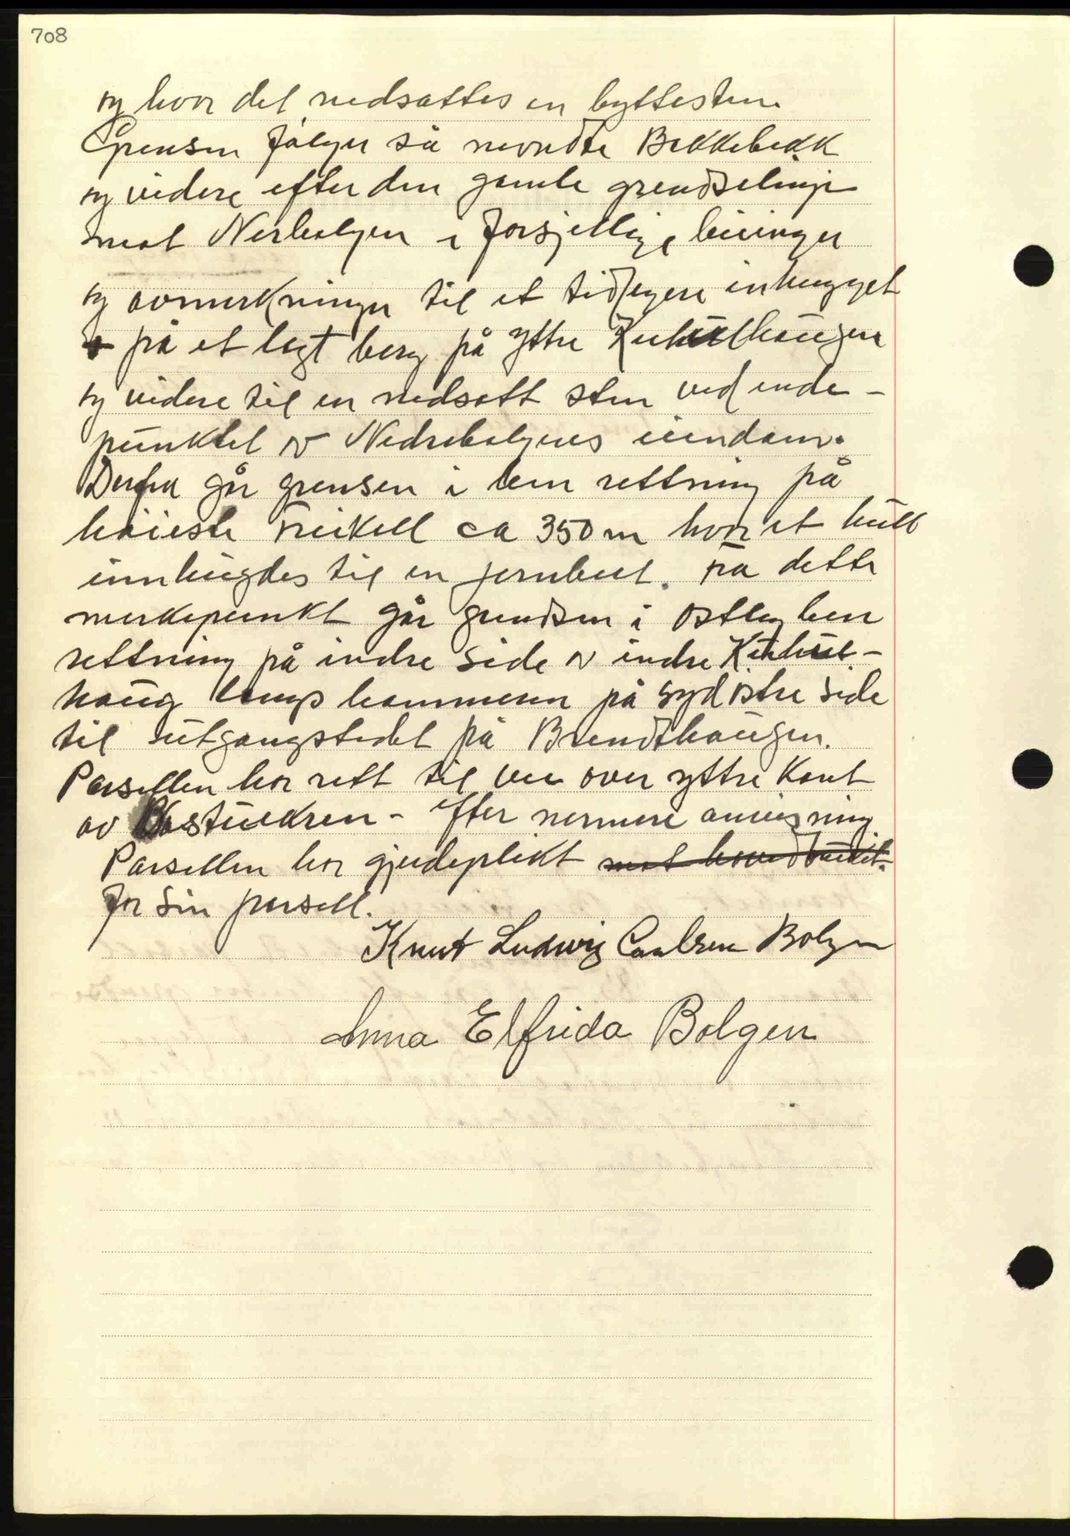 708
og hvor det nedsattes en byttesten.
Grensen følger så nevndte Bekkebekk
og videre efter den gamle grendselinje
mot Nerbolgen i forsjellige biininger
og avmerkninger til et tidligere inhugget
på et lagt berg på ytre Kuhülhaugen
og videre til en nedsatt sten ved ende-
punktet av Nedrebolgens eiendom.
Derfra går grensen i lem rettning på
høieste Freikoll ca 350 m hvor et hull
innhugdes til en jernbolt. Fra dette
merkepunkt går grendsen i østlig ben
rettning på indre side av indre Kuhül-
haug langs hammeren på sydøstre side
til utgangstedet på Brendthaugen.
Parsellen har rett til vei over yttre kant
av Bøstuekren - efter nermere anvisning
Parsellen har gjerdeplikt mot hovedbruket.
for sin parsell.
Knut Ludwig Carlsen Bolgen
Anna Elfrida Bolgen